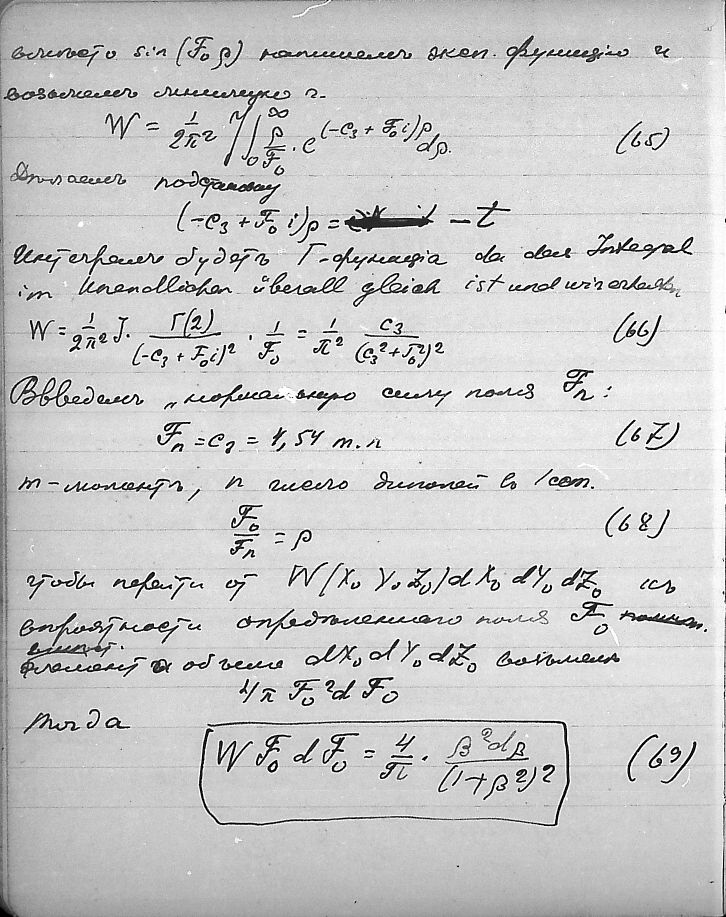 вместо sin (F₀ρ) напишемъ эксп. функцію и
возьмемъ мнимую ч.
W = 1/2π² J ∫₀^∞ ρ/F₀ · e^(-c₃ + F₀i)ρ dρ. (65)
Дѣлаемъ подстановку
(-c₃ + F₀ i)ρ = - t
Интегралъ будетъ Γ-функція da das Integral
im Unendlichen überall gleich ist und wir erhalten
W = 1/2π² J. Γ(2)/(-c₃ + F₀i)² · 1/F₀ = 1/π² c₃/(c₃² + F₀²)² (66)
Ввведемъ „нормальную силу поля Fₙ:
Fₙ = c₃ = 4,54 m.n (67)
m-моментъ, n число диполей въ 1 ccm.
F₀/Fₙ = ρ (68)
чтобы перейти от W(X₀ Y₀ Z₀) dX₀ dY₀ dZ₀ къ
вѣроятности опредѣленнаго поля F₀
элемента объема dX₀ dY₀ dZ₀ возьмемъ
4π F₀² dF₀
тогда
W F₀ dF₀ = 4/π · β²dβ/(1+β²)² (69)